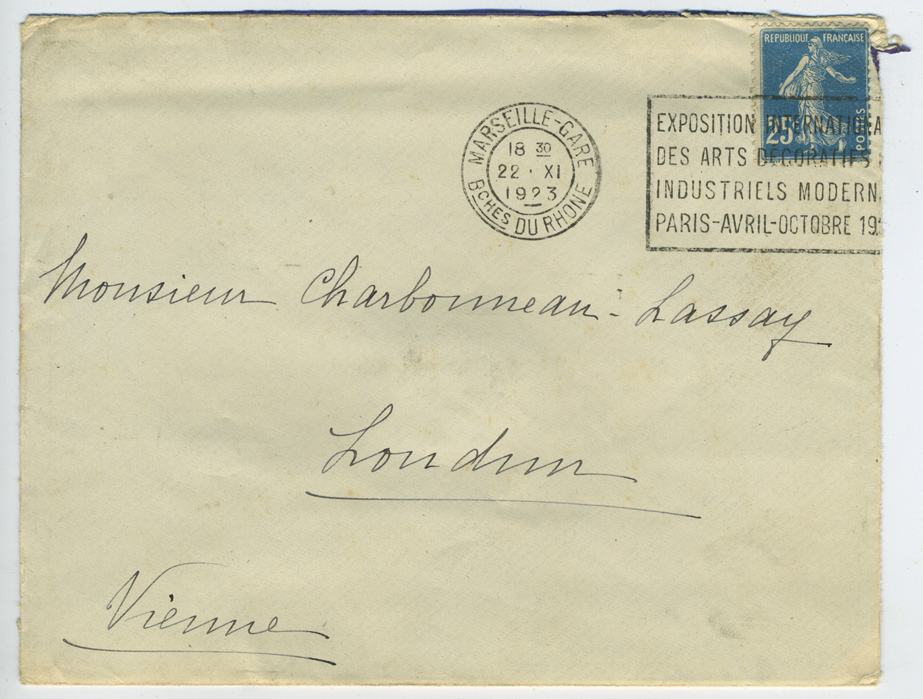 REPUBLIQUE FRANÇAISE
25c POSTES
MARSEILLE-GARE
18 30
22 · XI
1923
BCHES DU RHONE
EXPOSITION INTERNATIONA
DES ARTS DECORATIFS
INDUSTRIELS MODERN
PARIS-AVRIL-OCTOBRE 19
Monsieur Charbonneau-Lassay
Loudun
Vienne